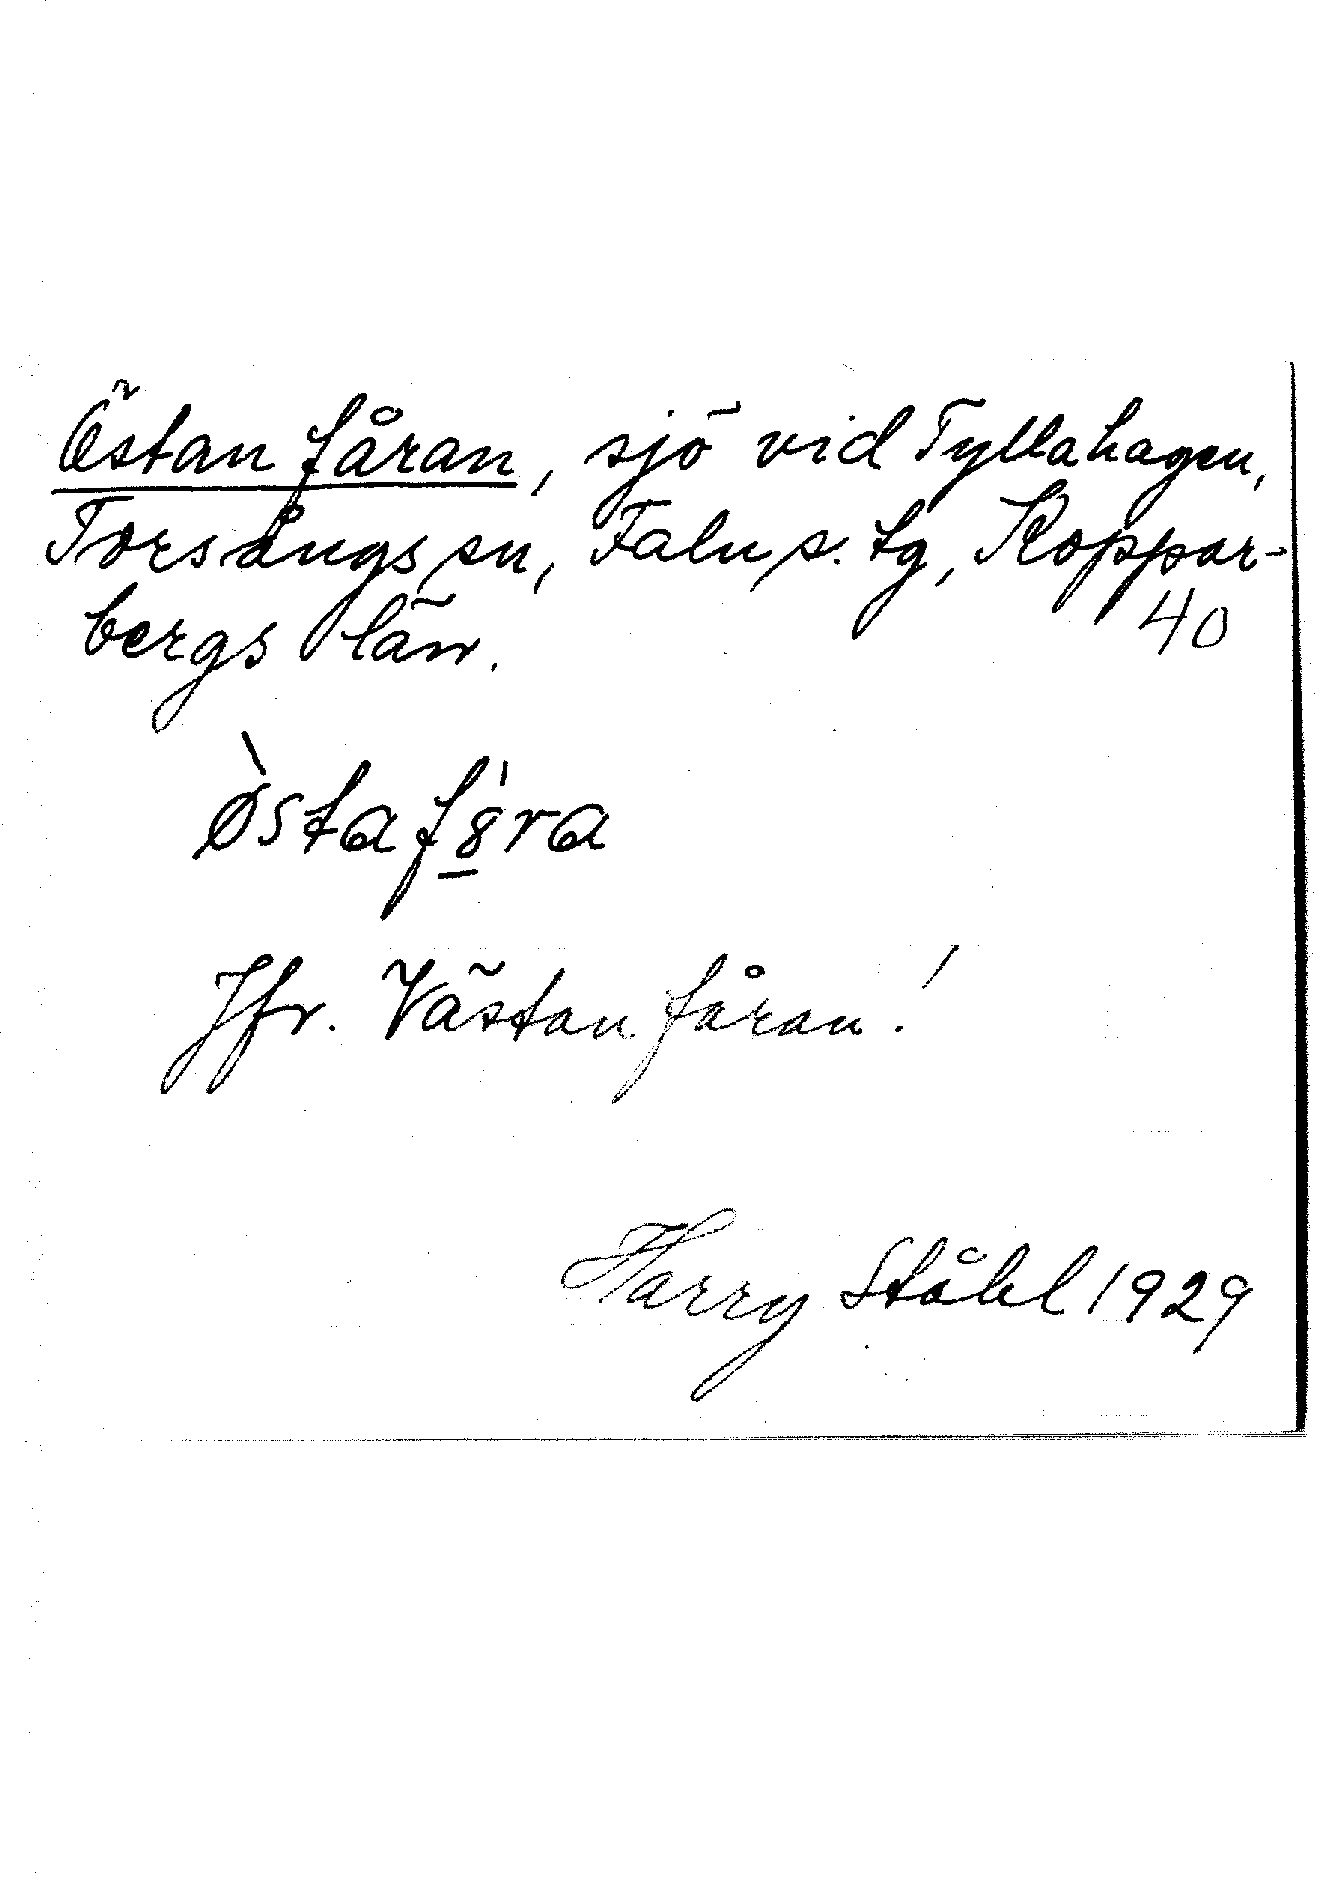 Östanfåran, sjö vid Tyllahagen,
Torsångs sn, Falu s. tg, Koppar-
bergs län.
40
østafȣra
Jfr. Västanfåran!
Harry Ståhl 1929